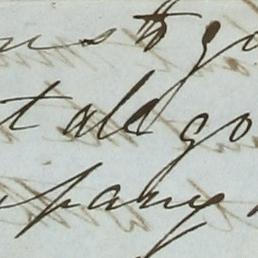 us to go
t all go
pany